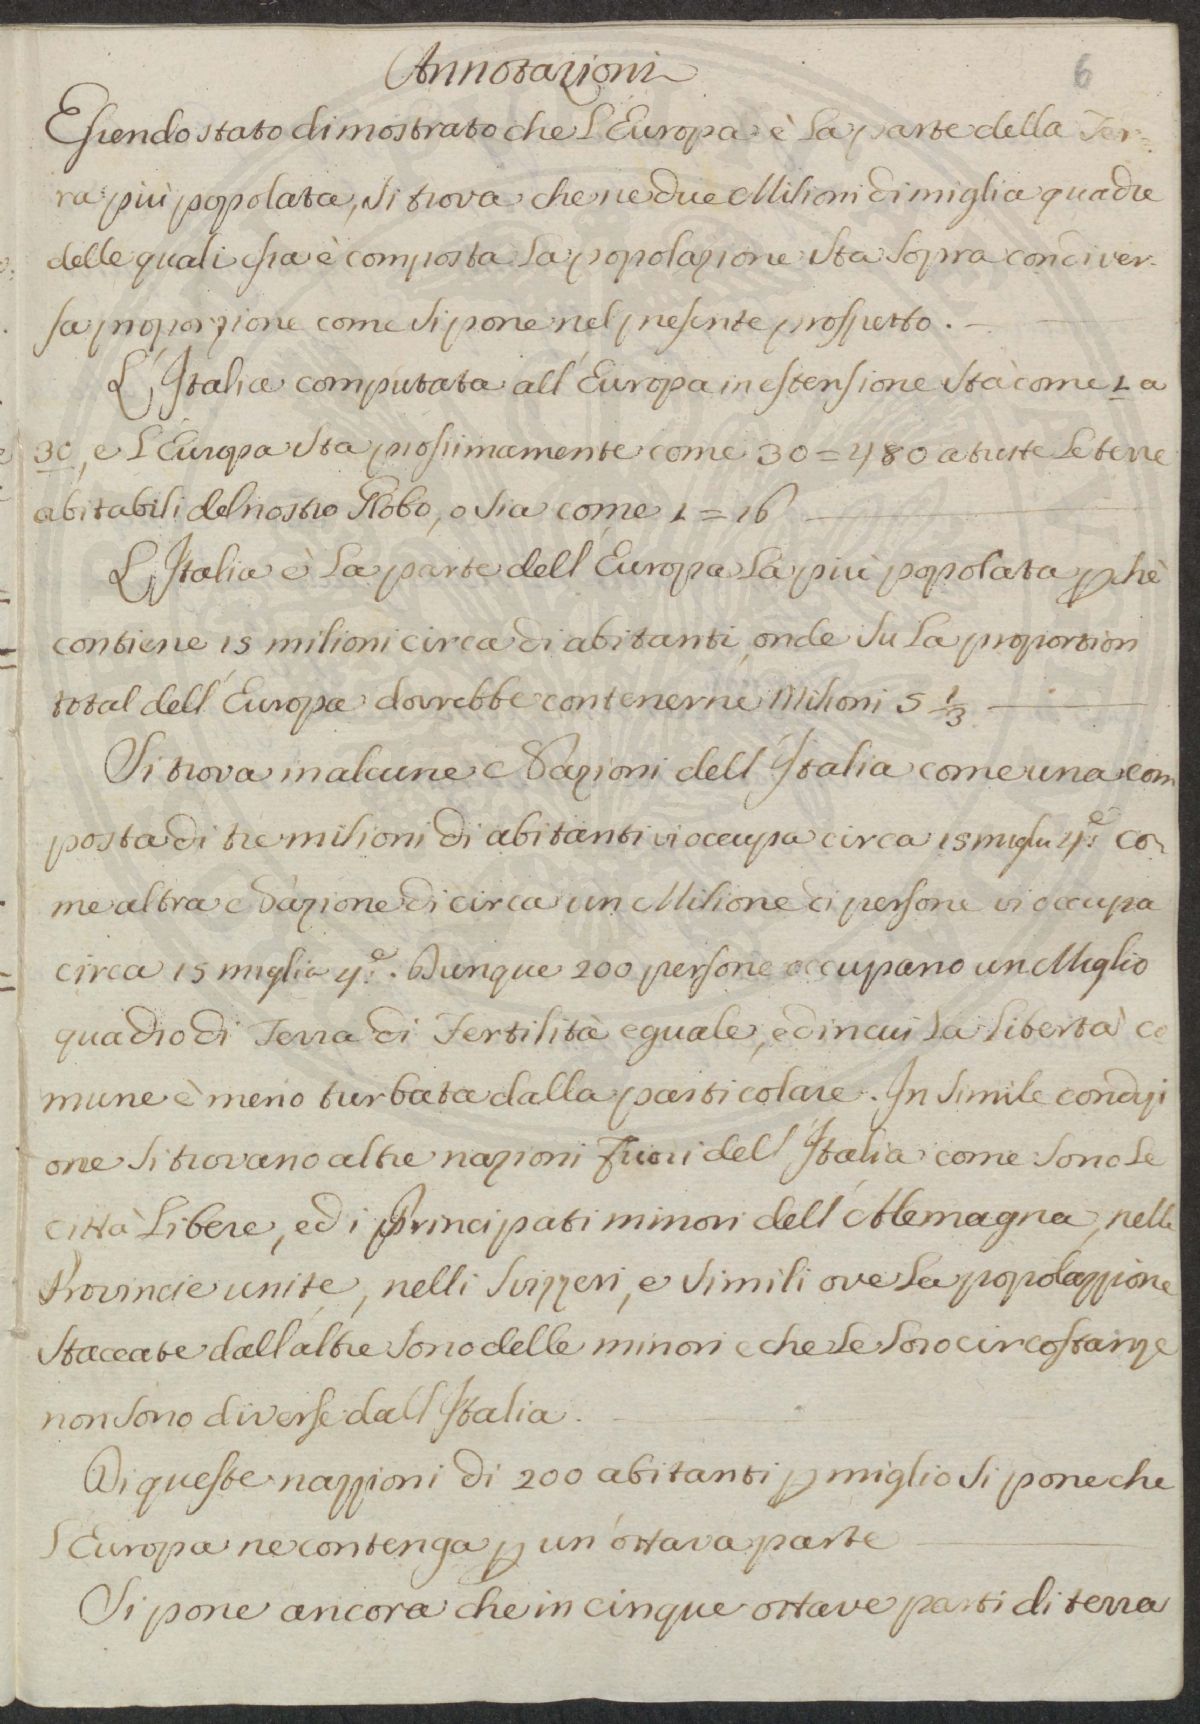 Annotazioni
6
Essendo stato dimostrato che L'Europa è La parte della Ter-
ra più popolata, si trova che ne due Milioni di miglia quadre
delle quali essa è composta La popolazione sta sopra con diver-
sa proporzione come si pone nel presente prospetto.
L'Italia computata all'Europa in estensione stà come 1 a
30, e L'Europa sta prossimamente come 30 = 480 a tutte Le terre
abitabili del nostro Globo, o sia come 1 = 16
L'Italia è La parte dell'Europa La più popolata p chè
contiene 15 milioni circa di abitanti, onde su La proportion
total dell'Europa dovrebbe contenerne Milioni 5 1/3
Si trova in alcune Nazioni dell'Italia come una com
posta di tre milioni di abitanti vi occupa circa 15 miglia q.e co-
me altra Nazione di circa un Milione di persone vi occupa
circa 15 miglia q.e. Dunque 200 persone occupano un Miglio
quadro di Terra di Fertilità eguale, ed in cui La Libertà co
mune è meno turbata dalla particolare. In simile condizi
one si trovano altre nazioni fuori dell'Italia come sono Le
città Libere, ed i Principati minori dell'Alemagna, nelle
Provincie unite, nelli Svizzeri, e simili ove La popolazzione
staccate dall'altre sono delle minori e che Le Loro circostanze
non sono diverse dall'Italia.
Di queste nazzioni di 200 abitanti p miglio si pone che
L'Europa ne contenga p un'ottava parte
Si pone ancora che in cinque ottave parti di terra